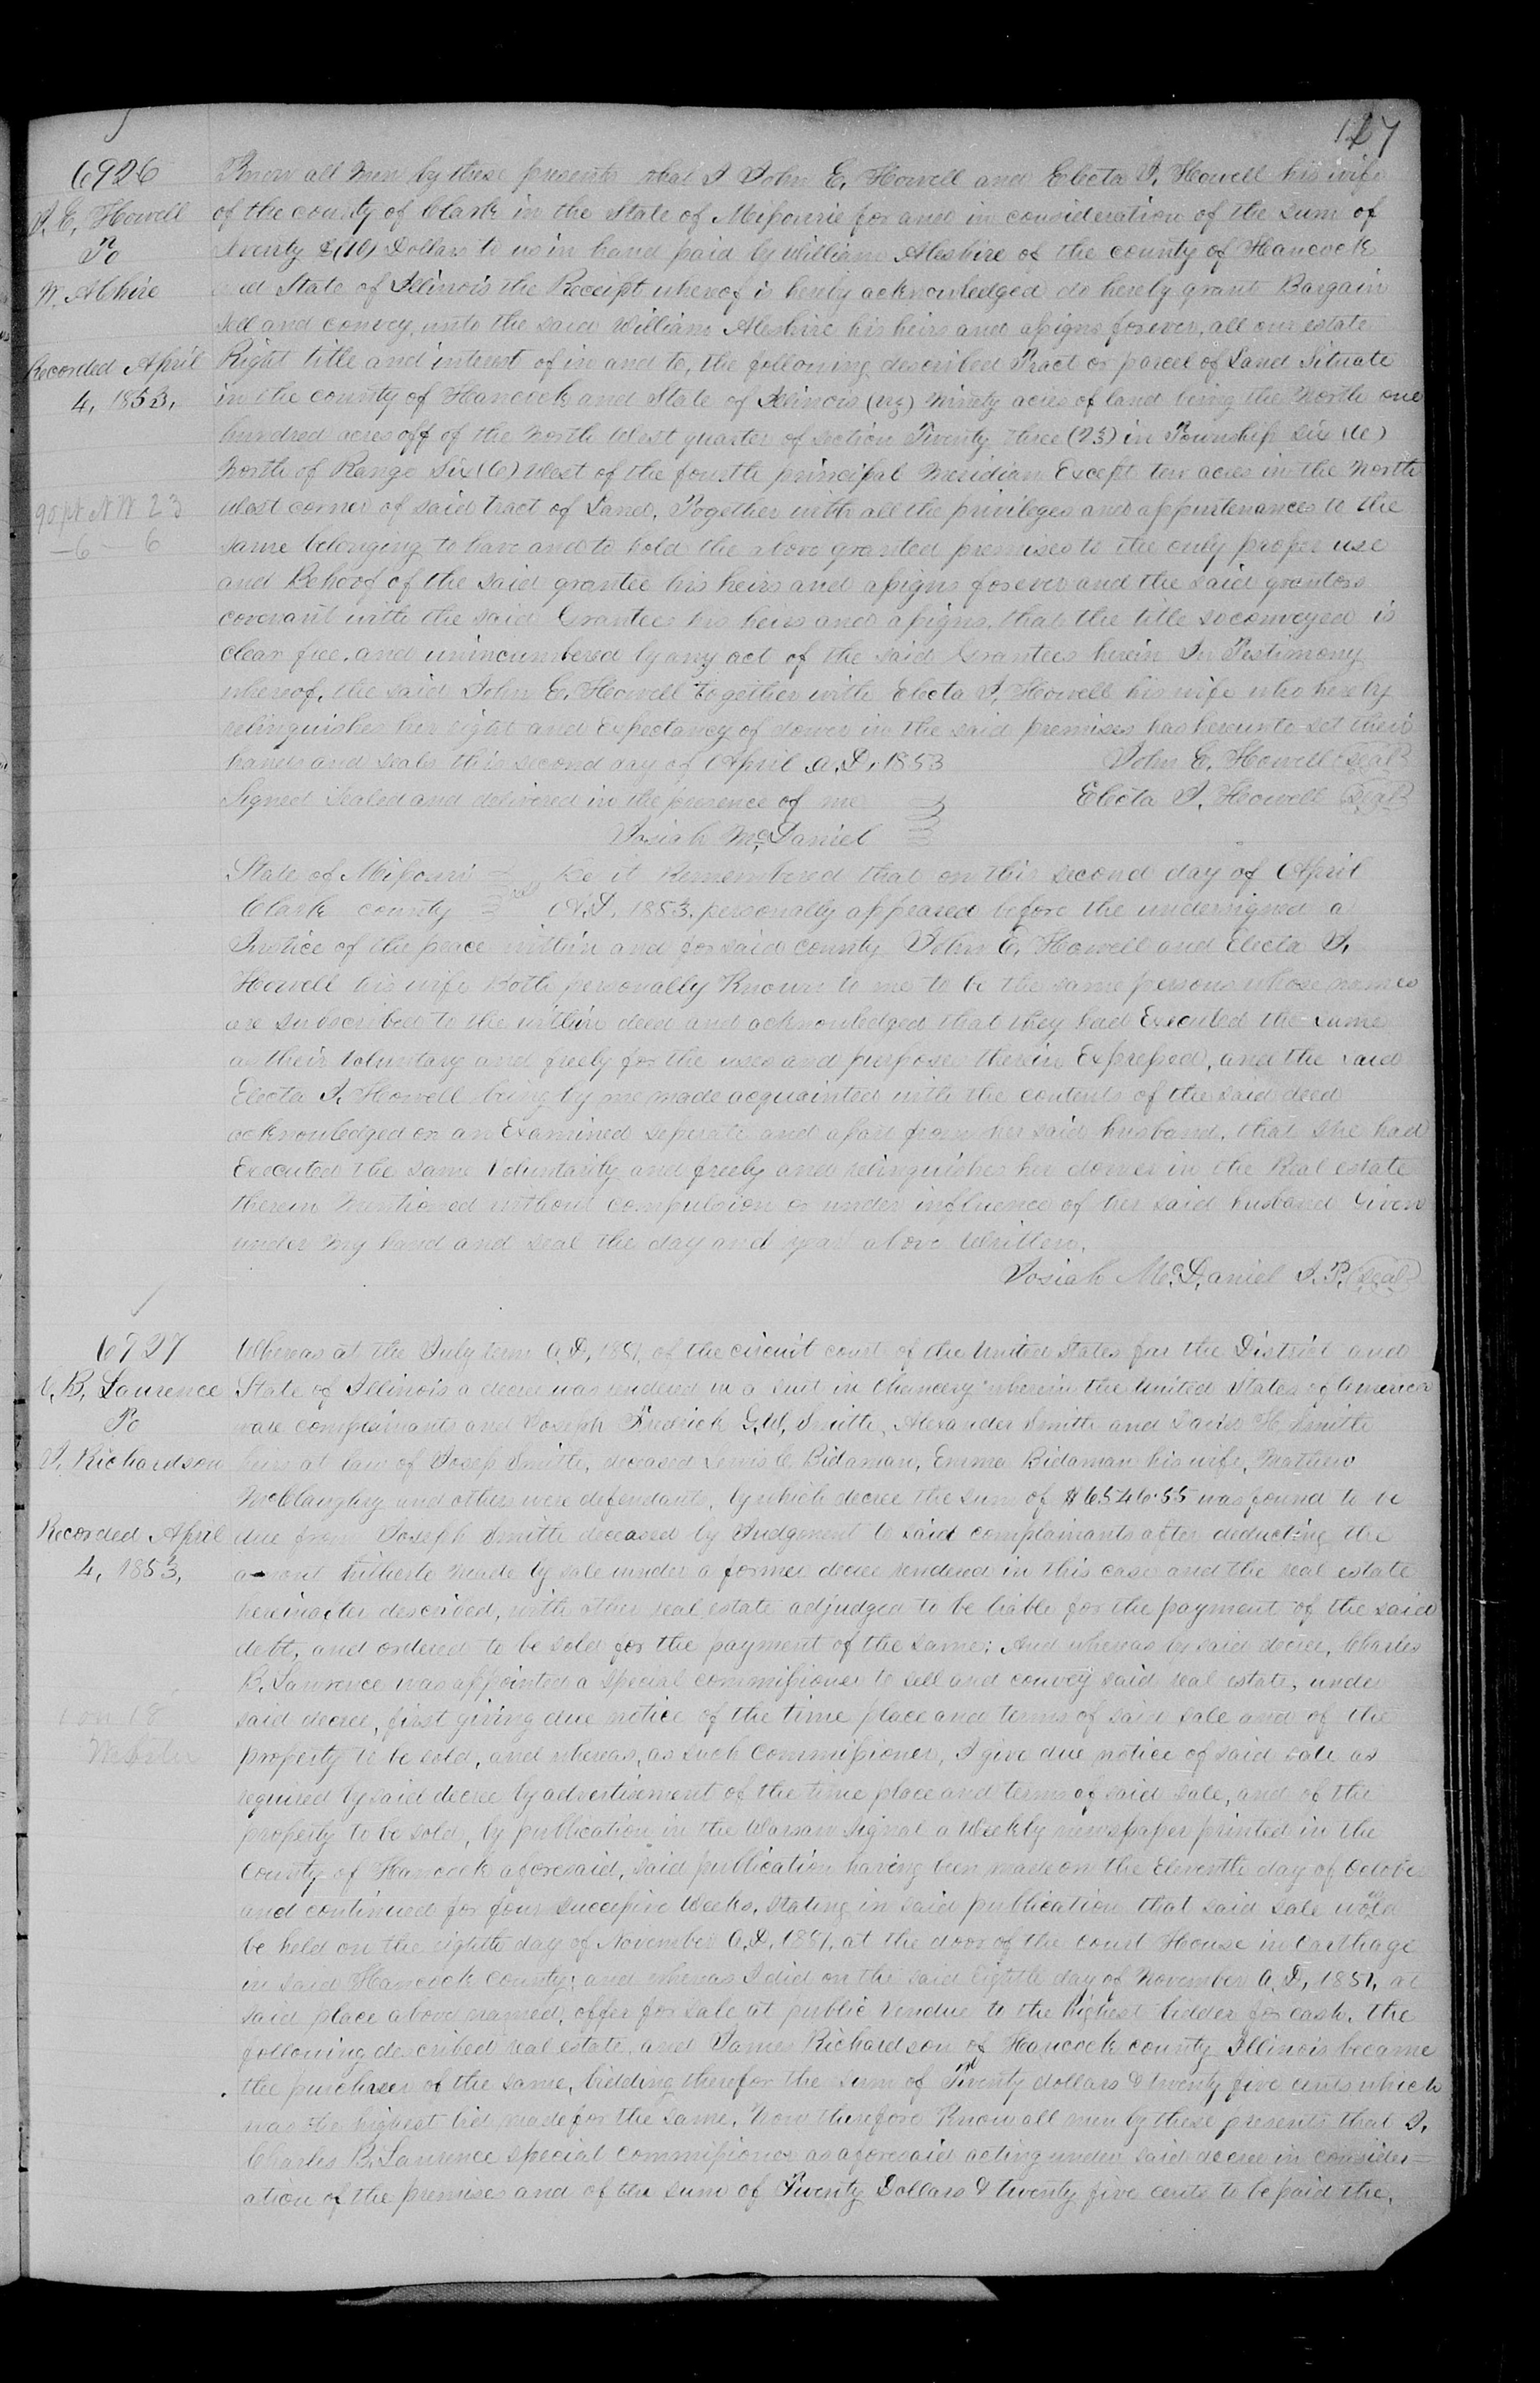 127
6926
J. E. Howell
To
W. Alshire
Recorded April
4, 1853,
90 pt N W 23
—6— 6
Know all Men by these presents that I John E. Howell and Electa J. Howell his wife
of the county of Clark in the State of Missourie for and in consideration of the sum of
Dollars to us in hand paid by William Aleshire of the county of Hancock
and State of Illinois the Receipt whereof is hereby acknowledged do hereby grant Bargain
sell and convey, unto the said William Aleshire his heirs and assigns forever, all our estate
Right title and interest of in and to, the following described Tract or parcel of Land Situate
in the county of Hancock and State of Illinois (viz) Ninety acres of land being the North one
hundred acres off of the North West quarter of section Twenty three (23) in Township six (6)
North of Range Six (6) West of the fourth principal Meridian Except ten acres in the North
corner of said tract of Land, Together with all the privileges and appurtenances to the
same belonging to have and to hold the above granted premises to the only proper use
and Behoof of the said grantee his heirs and assigns forever and the said grantors
covenant with the said Grantee his heirs and assigns, that the title so conveyed is
clear free, and unincumbered by any act of the said Grantees herein In Testimony
whereof, the said John E. Howell together with Electa J. Howell his wife who hereby
relinquishes her right and Expectancy of dower in the said premises has hereunto set their
hands and seals this second day of April A.D. 1853 John E. Howell (Seal)
Signed Sealed and delivered in the presence of me Electa J. Howell (Seal)
Josiah McDaniel
State of Missouri Be it Remembered that on this second day of April
Clark county ss A.D. 1853, personally appeared before the undersigned a
Justice of the peace within and for said county John E. Howell and Electa J.
Howell his wife Both personally Known to me to be the same persons whose names
are subscribed to the within deed and acknowledged that they had Executed the same
as their Voluntary and freely for the uses and purposes therein Expressed, and the said
Electa J. Howell being by me made acquainted with the contents of the said deed
acknowledged on an Examined seperate and apart from her said husband, that she had
Executed the same Voluntarily and freely and relinquishes her dower in the Real estate
therein Mentioned without compulsion or under influence of her said husband Given
under my hand and seal the day and year above Written.
Josiah McDaniel J.P. (Seal)
6927
C. B. Laurence
To
J. Richardson
Recorded April
4, 1853,
Whereas at the July term A.D. 1851, of the circuit court of the United States for the District and
State of Illinois a decree was rendered in a suit in Chancery wherein the United States of America
ware complainants and Joseph Fredrick G.W. Smith, Alexander Smith and David H. Smith
heirs at law of Josep Smith, deceased Lewis C. Bidaman, Emma Bidaman his wife, Mathew
McClaughry and others were defendants, by which decree the sum of $6546.55 was found to be
due from Joseph Smith deceased by Judgment to said complainants after deducting the
amount hitherto made by sale under a former decree rendered in this case and the real estate
hereinafter described, with other real estate adjudged to be liable for the payment of the said
debt, and ordered to be sold for the payment of the same; And whereas by said decree, Charles
B. Lawrence was appointed a Special commissioner to sell and convey said real estate, under
said decree, first giving due notice of the time place and terms of said sale and of the
property to be sold, and whereas, as such Commissioner, I give due notice of said sale as
required by said decree by advertisement of the time place and terms of said sale, and of the
property to be sold, by publication in the Warsaw Signal a Weekly newspaper printed in the
County of Hancock aforesaid, said publication having been made on the Eleventh day of October
and continued for four successive Weeks, stating in said publication that said sale would
be held on the eighth day of November A.D. 1851, at the door of the Court House in Carthage
in said Hancock County; and whereas I did on the said Eighth day of November A.D. 1851, at
said place above named, offer for sale at public Vendue to the highest bidder for cash, the
following described real estate, and James Richardson of Hancock county Illinois became
the purchaser of the same, bidding therefor the sum of Twenty dollars & twenty five cents which
was the highest bid made for the same, Now therefore Know all men by these presents that I,
Charles B. Laurence Special Commissioner as aforesaid acting under said decree in consider=
ation of the premises and of the sum of Twenty Dollars & twenty five cents to be paid the,